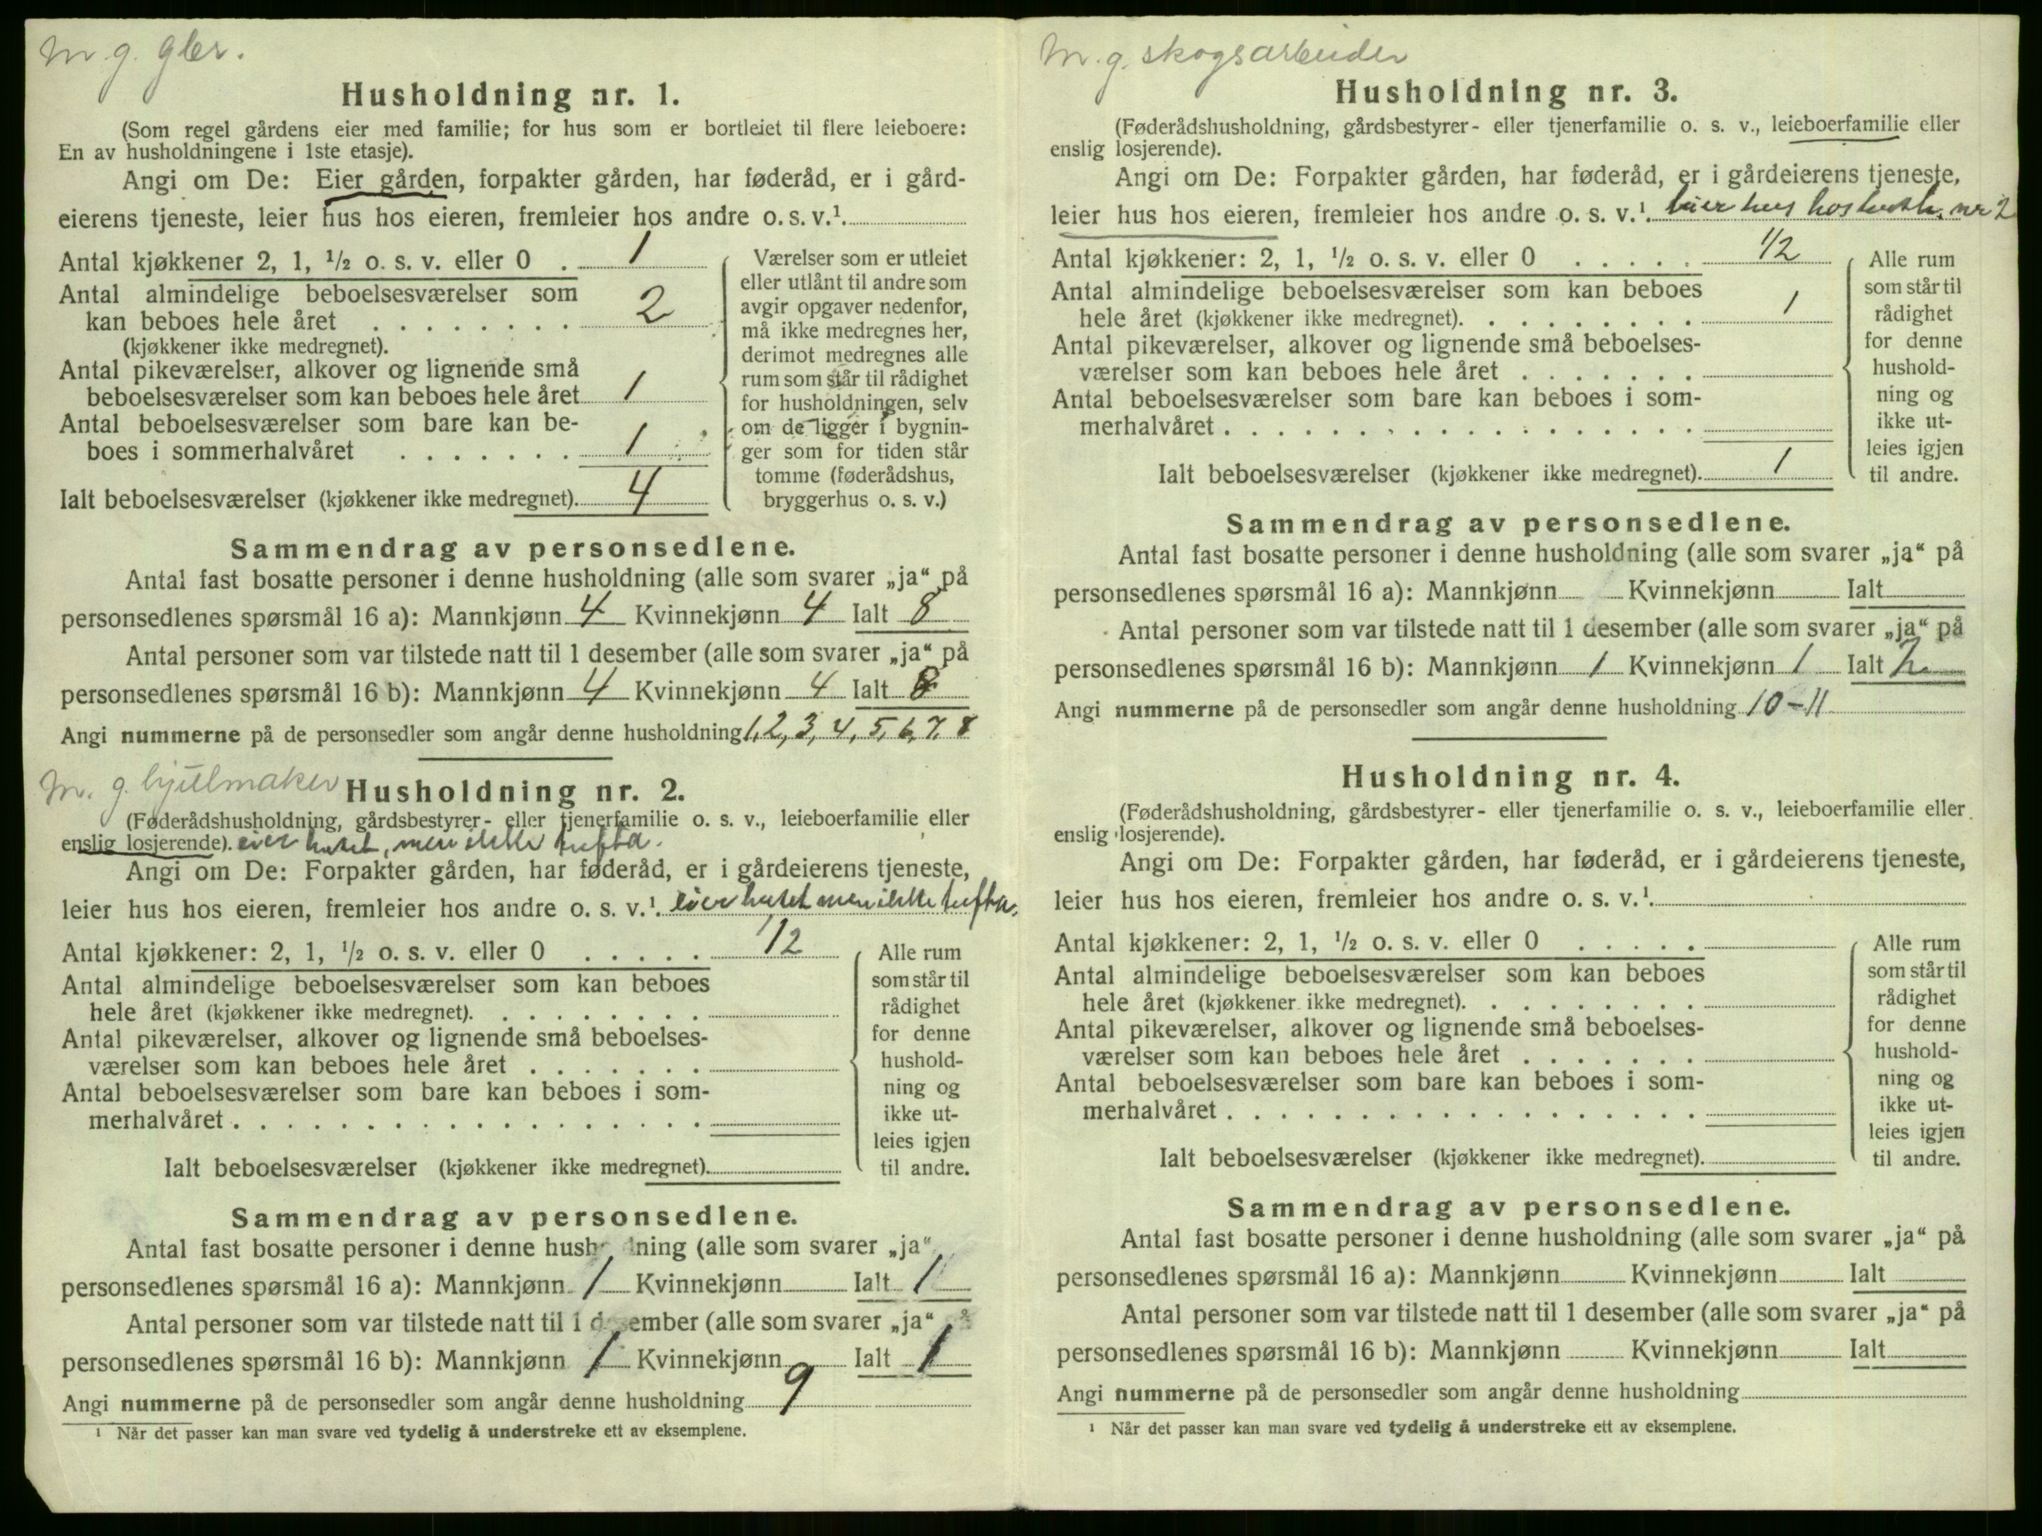 M. g. gbr.
Husholdning nr. 1.
(Som regel gårdens eier med familie; for hus som er bortleiet til flere leieboere:
En av husholdningene i 1ste etasje).
Angi om De: Eier gården, forpakter gården, har føderåd, er i gård-
eierens tjeneste, leier hus hos eieren, fremleier hos andre o. s. v.¹
Antal kjøkkener 2, 1, ½ o. s. v. eller 0 . 1
Antal almindelige beboelsesværelser som
kan beboes hele året . . . . . . . . 2
(kjøkkener ikke medregnet).
Antal pikeværelser, alkover og lignende små
beboelsesværelser som kan beboes hele året 1
Antal beboelsesværelser som bare kan be-
boes i sommerhalvåret . . . . . . . 1
Ialt beboelsesværelser (kjøkkener ikke medregnet). 4
Værelser som er utleiet
eller utlånt til andre som
avgir opgaver nedenfor,
må ikke medregnes her,
derimot medregnes alle
rum som står til rådighet
for husholdningen, selv
om de ligger i bygnin-
ger som for tiden står
tomme (føderådshus,
bryggerhus o. s. v.)
Sammendrag av personsedlene.
Antal fast bosatte personer i denne husholdning (alle som svarer „ja“ på
personsedlenes spørsmål 16 a): Mannkjønn 4 Kvinnekjønn 4 Ialt 8
Antal personer som var tilstede natt til 1 desember (alle som svarer „ja“ på
personsedlenes spørsmål 16 b): Mannkjønn 4 Kvinnekjønn 4 Ialt 8
Angi nummerne på de personsedler som angår denne husholdning 1, 2, 3, 4, 5, 6, 7, 8
M. g. hjulmaker
Husholdning nr. 2.
(Føderådshusholdning, gårdsbestyrer- eller tjenerfamilie o. s. v., leieboerfamilie eller
enslig losjerende). eier huset, men ikke tufta.
Angi om De: Forpakter gården, har føderåd, er i gårdeierens tjeneste,
leier hus hos eieren, fremleier hos andre o. s. v.¹. eier huset men ikke tufta.
Antal kjøkkener: 2, 1, ½ o. s. v. eller 0 . . . . . 1/2
Antal almindelige beboelsesværelser som kan beboes
hele året (kjøkkener ikke medregnet). . . . . . . . .
Antal pikeværelser, alkover og lignende små beboelses-
værelser som kan beboes hele året . . . . . . .
Antal beboelsesværelser som bare kan beboes i som-
merhalvåret . . . . . . . . . . . . . . . . . .
Ialt beboelsesværelser (kjøkkener ikke medregnet).
Alle rum
som står til
rådighet
for denne
hushold-
ning og
ikke ut-
leies igjen
til andre.
Sammendrag av personsedlene.
Antal fast bosatte personer i denne husholdning (alle som svarer „ja“
personsedlenes spørsmål 16 a): Mannkjønn 1 Kvinnekjønn Ialt 1
Antal personer som var tilstede natt til 1 desember (alle som svarer „ja“ på
personsedlenes spørsmål 16 b): Mannkjønn 1 Kvinnekjønn Ialt 1
Angi nummerne på de personsedler som angår denne husholdning 9
¹ Når det passer kan man svare ved tydelig å understreke ett av eksemplene.
M. g. skogsarbeider
Husholdning nr. 3.
(Føderådshusholdning, gårdsbestyrer- eller tjenerfamilie o. s. v., leieboerfamilie eller
enslig losjerende).
Angi om De: Forpakter gården, har føderåd, er i gårdeierens tjeneste,
leier hus hos eieren, fremleier hos andre o. s. v.¹. leier hus hos hush. nr 2
Antal kjøkkener: 2, 1, ½ o. s. v. eller 0 . . . . . 1/2
Antal almindelige beboelsesværelser som kan beboes
hele året (kjøkkener ikke medregnet). . . . . . . . . 1
Antal pikeværelser, alkover og lignende små beboelses-
værelser som kan beboes hele året . . . . . . .
Antal beboelsesværelser som bare kan beboes i som-
merhalvåret . . . . . . . . . . . . . . . . . .
Ialt beboelsesværelser (kjøkkener ikke medregnet). 1
Alle rum
som står til
rådighet
for denne
hushold-
ning og
ikke ut-
leies igjen
til andre.
Sammendrag av personsedlene.
Antal fast bosatte personer i denne husholdning (alle som svarer „ja“ på
personsedlenes spørsmål 16 a): Mannkjønn Kvinnekjønn Ialt
Antal personer som var tilstede natt til 1 desember (alle som svarer „ja“ på
personsedlenes spørsmål 16 b): Mannkjønn 1 Kvinnekjønn 1 Ialt 2
Angi nummerne på de personsedler som angår denne husholdning 10-11
Husholdning nr. 4.
(Føderådshusholdning, gårdsbestyrer- eller tjenerfamilie o. s. v., leieboerfamilie eller
enslig losjerende).
Angi om De: Forpakter gården, har føderåd, er i gårdeierens tjeneste,
leier hus hos eieren, fremleier hos andre o. s. v.¹.
Antal kjøkkener: 2, 1, ½ o. s. v. eller 0 . . . . .
Antal almindelige beboelsesværelser som kan beboes
hele året (kjøkkener ikke medregnet). . . . . . . . .
Antal pikeværelser, alkover og lignende små beboelses-
værelser som kan beboes hele året . . . . . . .
Antal beboelsesværelser som bare kan beboes i som-
merhalvåret . . . . . . . . . . . . . . . . . .
Ialt beboelsesværelser (kjøkkener ikke medregnet).
Alle rum
som står til
rådighet
for denne
hushold-
ning og
ikke ut-
leies igjen
til andre.
Sammendrag av personsedlene.
Antal fast bosatte personer i denne husholdning (alle som svarer „ja“ på
personsedlenes spørsmål 16 a): Mannkjønn Kvinnekjønn Ialt
Antal personer som var tilstede natt til 1 desember (alle som svarer „ja“ på
personsedlenes spørsmål 16 b): Mannkjønn Kvinnekjønn Ialt
Angi nummerne på de personsedler som angår denne husholdning
¹ Når det passer kan man svare ved tydelig å understreke ett av eksemplene.